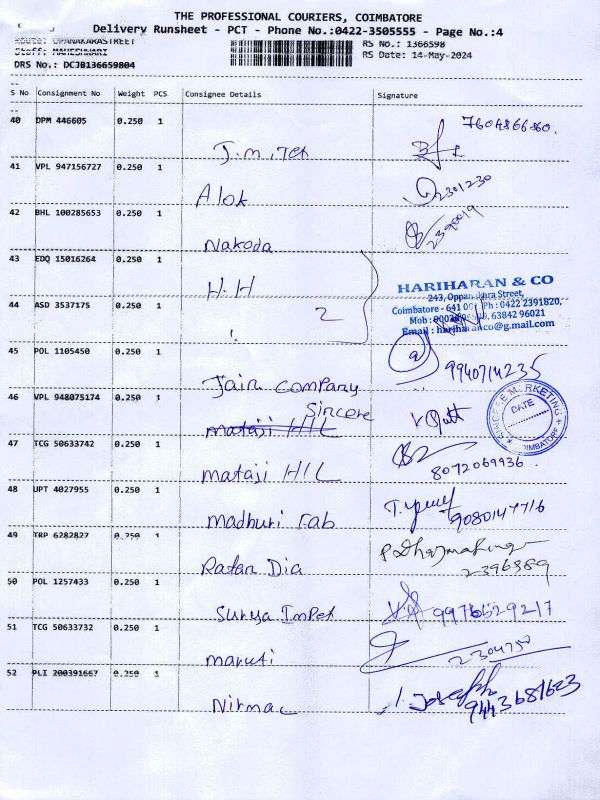 THE PROFESSIONAL COURIERS, COIMBATORE
Delivery Runsheet - PCT - Phone No.:0422-3505555 - Page No.:4
Route: OPANAKARASTREET
RS No.: 1366598
Staff: MAHESHWARI
RS Date: 14-May-2024
DRS No.: DCJB136659804
S No Consignment No Weight PCS Consignee Details Signature
40 DPM 446605 0.250 1
7604866860.
41 VPL 947156727 0.250 1
Alok 2301230
42 BHL 100285653 0.250 1
Nakoda 2390019
43 EDQ 15016264 0.250 1
H.H
HARIHARAN & CO
243, Oppanakara Street,
44 ASD 3537175 0.250 1
2
Coimbatore - 641 001 Ph : 0422 2391820,
63842 96021
Email : hariharanco@g.mail.com
45 POL 1105450 0.250 1
Jain Company 9940714235
46 VPL 948075174 0.250 1
Sincere
mataji HIL
SINCERE MARKETING
DATE
COIMBATORE
47 TCG 50633742 0.250 1
mataji HIL 8072069936.
48 UPT 4027955 0.250 1
Madhuri Fab 9080147716
49 TRP 6282827 0.250 1
Ratan Dia 2396989
50 POL 1257433 0.250 1
Surya Impex 9976529217
51 TCG 50633732 0.250 1
maruti 2304750
52 PLI 200391667 0.250 1
Nirmac Joseph
9443681623